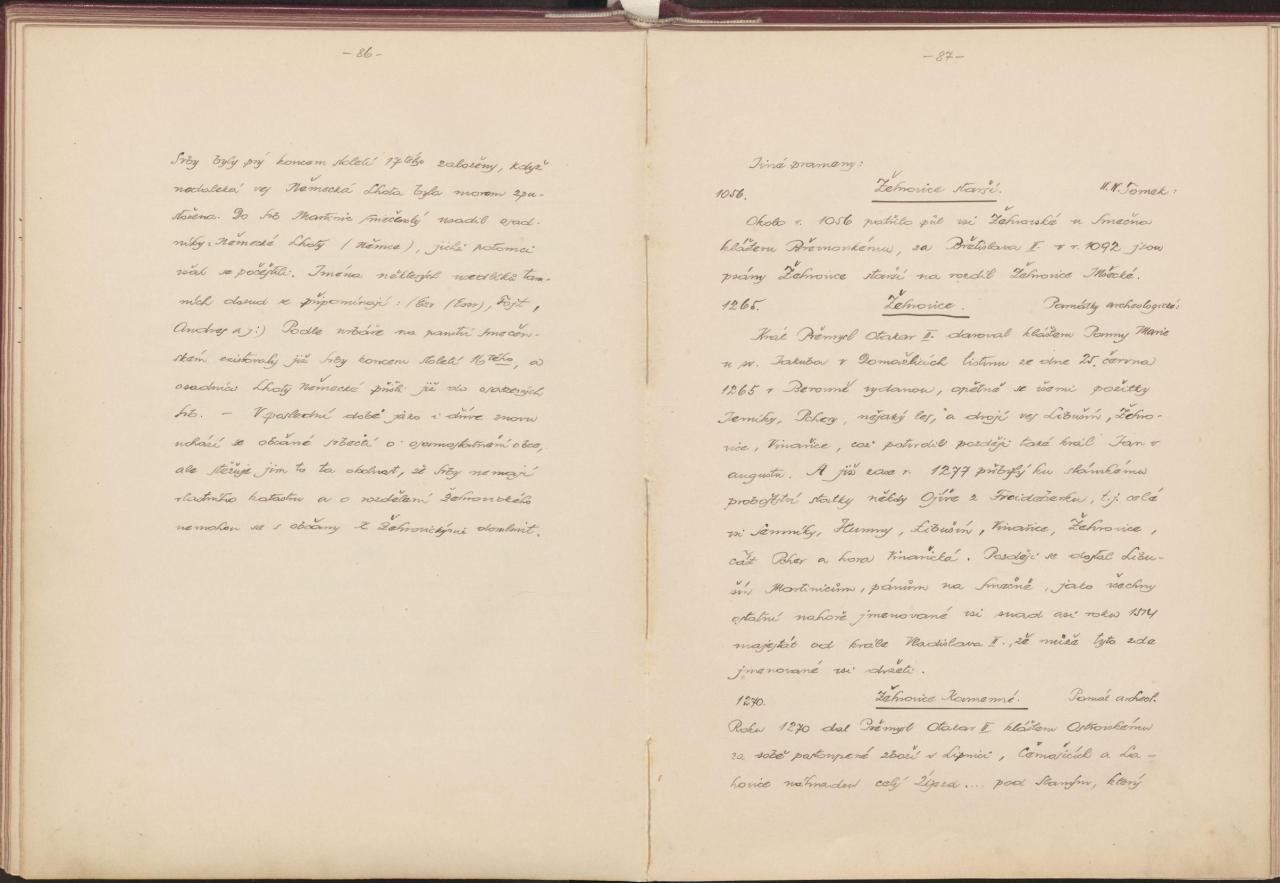 - 86 -
Srby byly prý koncem století 17tého založeny, když
nedaleká ves Německá Lhota byla morem zpu-
stošena. Do Srb Martinic Smečenský usadil osad-
níky Německé Lhoty (Němce), jichž potomci
však se počeštili. Jména některých usedlíků tam-
ních dosud se připomínají: Fojt,
Andres a j:) Podle urbáře na panství Smečen-
ském existovaly již Srby koncem století 16tého, a
osadníci Lhoty Německé přišli již do osazených
Srb. — V poslední době jako i dříve znovu
uchází se občané srbečtí o osamostatnění obce,
ale stěžuje jim to ta okolnost, že Srby nemají
vlastního katastru a o rozdělení Žehrovského
nemohou se s občany K. Žehrovickými domluvit.
- 87 -
Jiné prameny:
1056. Žehrovice starší. W.W. Tomek:
Okolo r. 1056 patřilo půl vsi Žehrovské u Smečna
klášteru Břevnovskému, za Břetislava II. v r. 1092 jsou
psány Žehrovice starší na rozdíl Žehrovice Mšecké.
1265. Žehrovice. Památky archeologické:
Král Přemysl Otakar II. daroval klášteru Panny Marie
u sv. Jakuba v Domažlicích listinu ze dne 25. června
1265 v Berouně vydanou, opětně se všemi požitky
Jemníky, Pchery, nějaký les, a dvojí ves Libušín, Žehro-
vice, Vinařice, což potvrdil později také král Jan v
augustu. A již zase r. 1277 přibyly ku slánskému
probošství statky někdy Ojíře z Freideberku, t.j. celé
vsi Jemníky, Humny, Libušín, Vinařice, Žehrovice,
část Pcher a hora Vinařická. Později se dostal Libu-
šín Martinicům, pánům na Smečně, jako všechny
ostatní nahoře jmenované vsi snad asi roku 1514
majestát od krále Vladislava II., že může tyto zde
jmenované vsi držeti.
1270. Žehrovice Kamenné. Památ. archeol.
Roku 1270 dal Přemysl Otakar II klášteru Ostrovskému
za sobě postoupené zboží v Lipnici, a La-
hovice náhradou celý Újezd .... pod Slaným, který